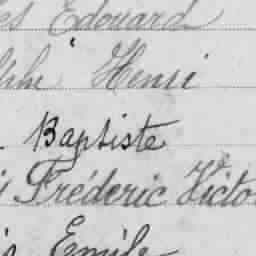 Edouard
Henri
Baptiste
Fréderic Victo
Emile